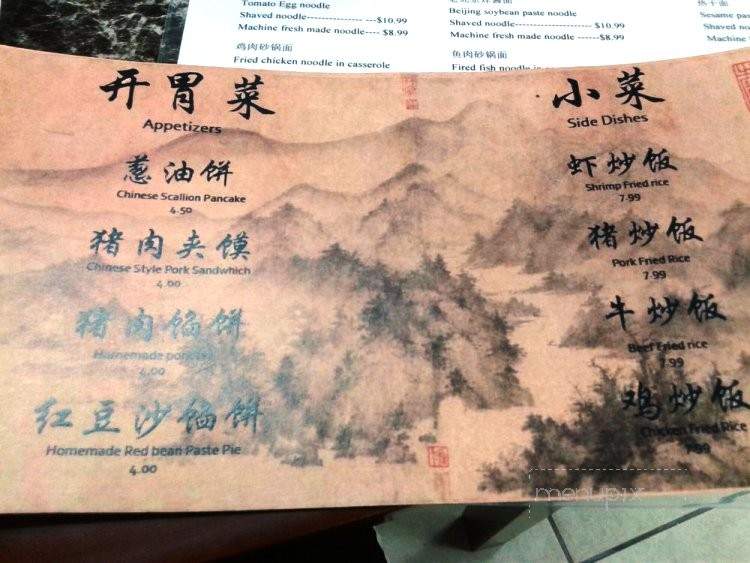 Tomato Egg noodle
Shaved noodle---------------- ---$10.99
Machine fresh made noodle ---- $8.99
鸡肉砂锅面
Fried chicken noodle in casserole
Beijing soybean paste noodle
Shaved noodle---------------------- $10.99
Machine fresh made noodle ------$8.99
鱼肉砂锅面
Fired fish noodle in
热干面
Sesame
Shaved
Machine
开胃菜
Appetizers
葱油饼
Chinese Scallion Pancake
4.50
猪肉夹馍
Chinese Style Pork Sandwhich
4.00
猪肉馅饼
Homemade
4.00
红豆沙馅饼
Homemade Red bean Paste Pie
4.00
小菜
Side Dishes
虾炒饭
Shrimp Fried rice
7.99
猪炒饭
Pork Fried Rice
7.99
牛炒饭
Beef Fried rice
7.99
鸡炒饭
Chicken Fried Rice
7.99
menupix